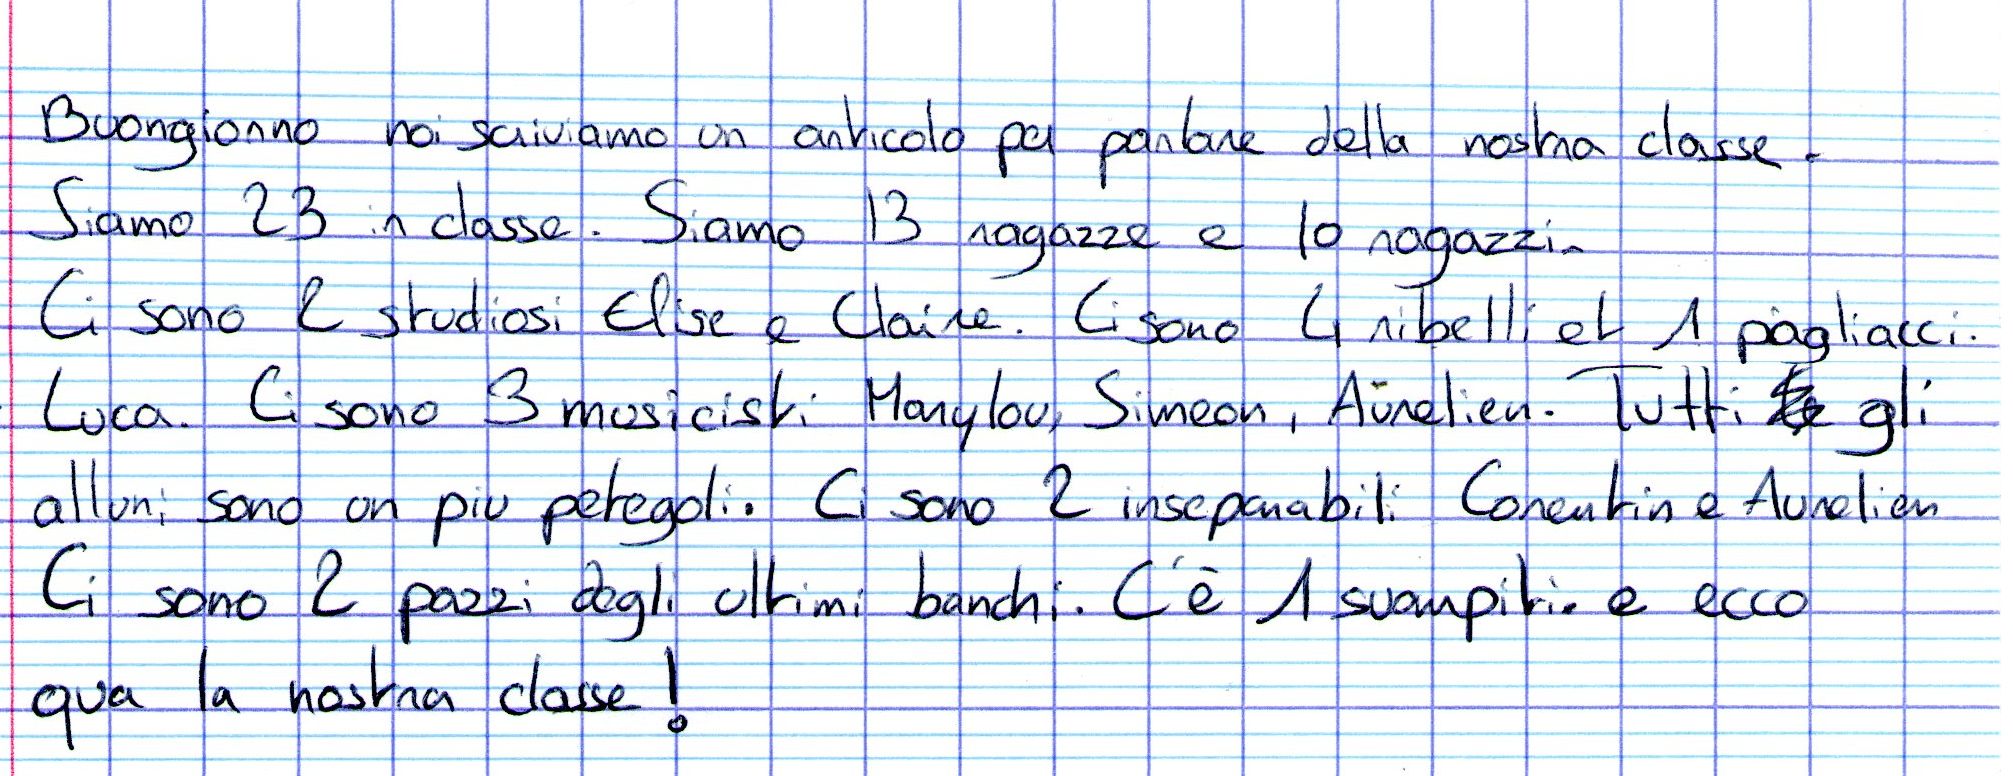 Buongiorno noi scriviamo un articolo per parlare della nostra classe.
Siamo 23 in classe. Siamo 13 ragazze e 10 ragazzi.
Ci sono 2 studiosi Elise e Claire. Ci sono 4 ribelli et 1 pagliacci.
Luca. Ci sono 3 musicisti Marylou, Simeon, Aurelien. Tutti gli
alluni sono un piu petegoli. Ci sono 2 inseparabili Corentin e Aurelien
Ci sono 2 pazzi degli ultimi banchi. C'è 1 svampiti. e ecco
qua la nostra classe!